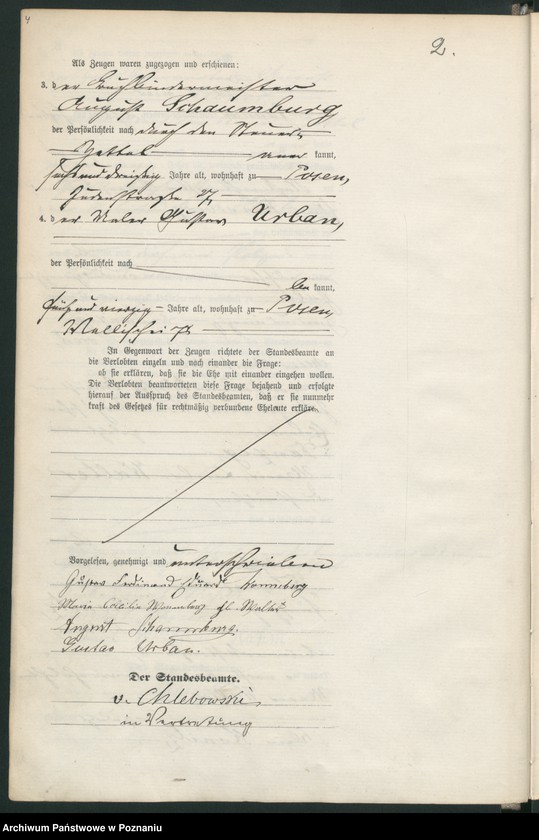 4
2.
Als Zeugen waren zugezogen und erschienen:
3. der Buchbindermeister
August Schaumburg
der Persönlichkeit nach durch den Steuer-
Zettel aner kannt,
sechs und dreißig Jahre alt, wohnhaft zu Posen,
Judenstraße
4. der Maler Gustav Urban,
der Persönlichkeit nach
be kannt,
fünf und vierzig Jahre alt, wohnhaft zu Posen,
Wallischei
In Gegenwart der Zeugen richtete der Standesbeamte an
die Verlobten einzeln und nach einander die Frage:
ob sie erklären, daß sie die Ehe mit einander eingehen wollen.
Die Verlobten beantworteten diese Frage bejahend und erfolgte
hierauf der Ausspruch des Standesbeamten, daß er sie nunmehr
kraft des Gesetzes für rechtmäßig verbundene Eheleute erkläre.
Vorgelesen, genehmigt und unterschrieben
Gustav Ferdinand Eduard
Maria
August Schaumburg.
Gustav Urban.
Der Standesbeamte.
v. Chlebowski,
in Vertretung
Archiwum Państwowe w Poznaniu